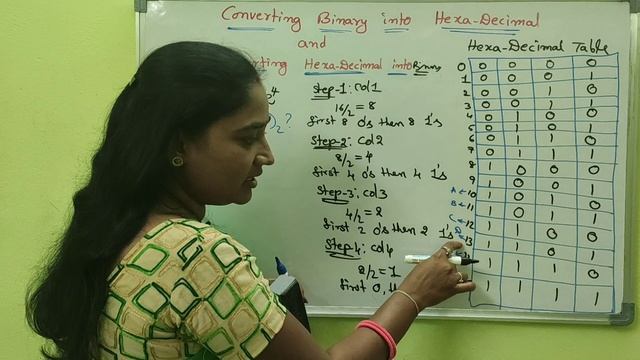 Converting Binary into Hexa-Decimal
and
rting Hexa-Decimal into Binary
)₂?
Step-1: col1
16/2 = 8
first 8 0's then 8 1's
Step-2: col2
8/2 = 4
first 4 0's then 4 1's
Step-3: col3
4/2 = 2
first 2 0's then 2 1's
Step 4: col4
2/2 = 1
first 0,
Hexa-Decimal Table
0 0 0 0 0
1 0 0 0 1
2 0 0 1 0
3 0 0 1 1
4 0 1 0 0
5 0 1 0 1
6 0 1 1 0
7 0 1 1 1
8 1 0 0 0
9 1 0 0 1
A ← 10 1 0 1 0
B ← 11 1 0 1 1
C ← 12 1 1 0 0
D ← 13 1 1 0 1
1 1 1 0
1 1 1 1